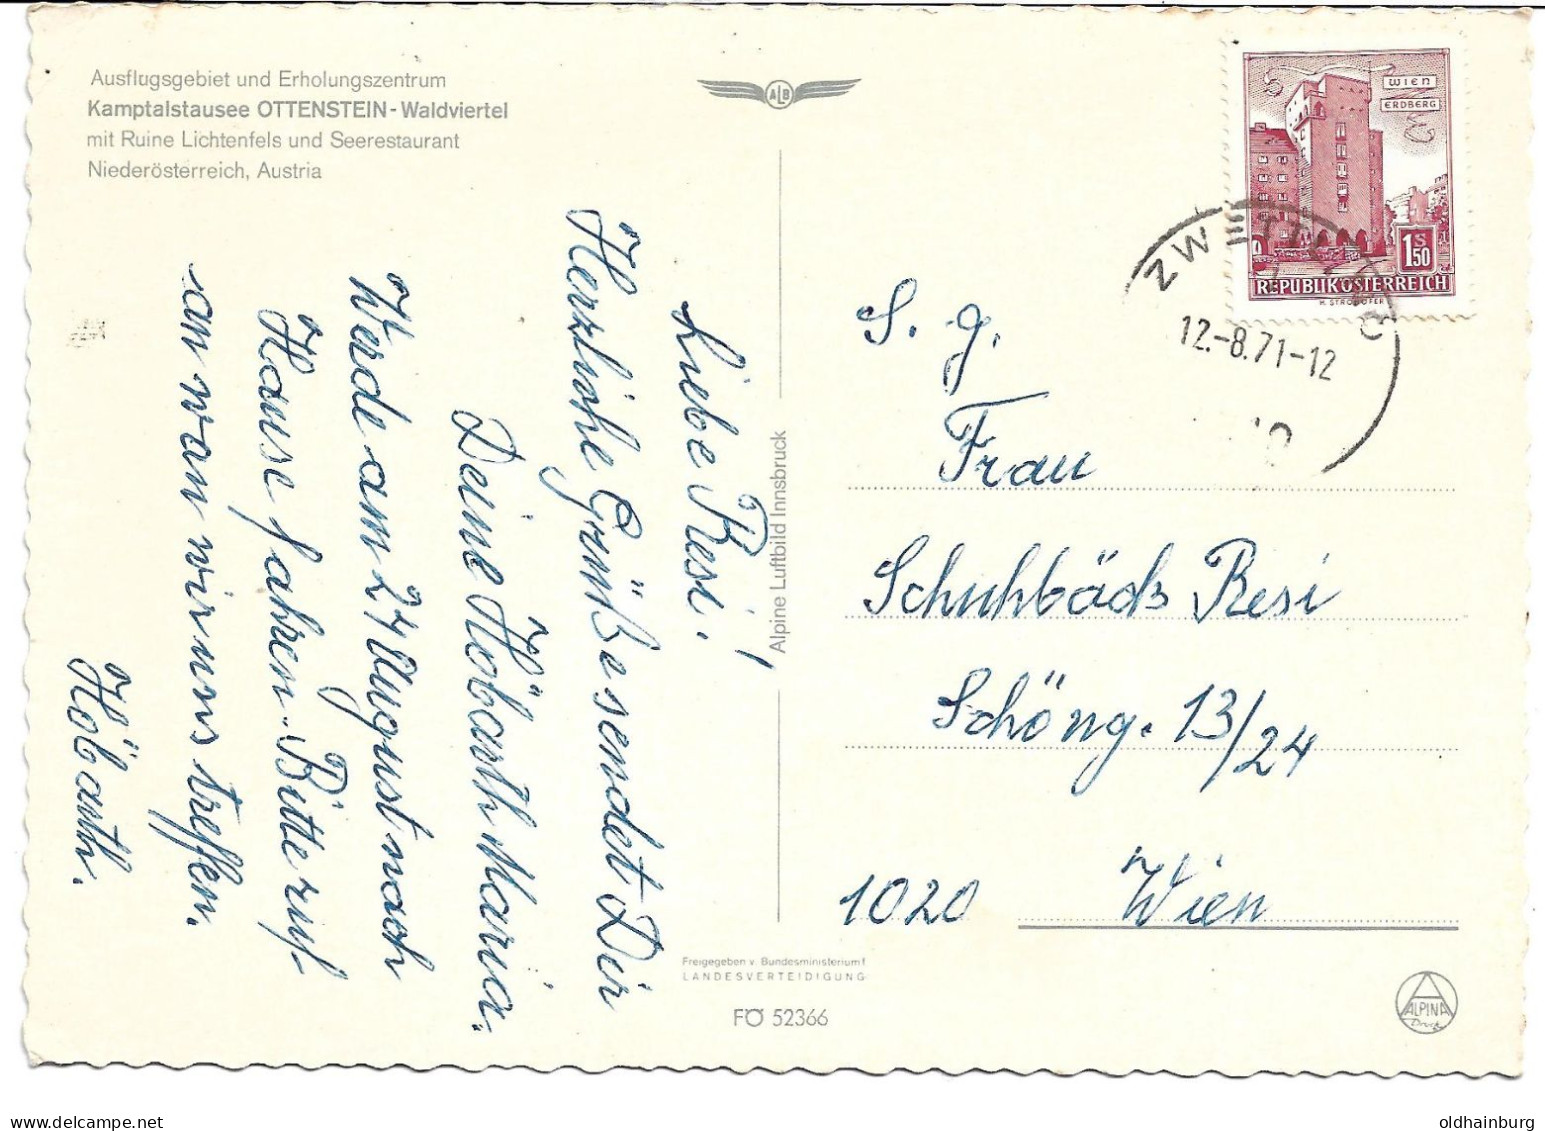 Ausflugsgebiet und Erholungszentrum
Kamptalstausee OTTENSTEIN - Waldviertel
mit Ruine Lichtenfels und Seerestaurant
Niederösterreich, Austria
ALB
WIEN
ERDBERG
1S50
REPUBLIK ÖSTERREICH
H. STROHOFER
ZWETTL
12.-8.71-12
Liebe Resi!
Herzliche Grüße sendet Dir
Deine Höbarth Maria.
Werde am 24 August nach
Hause fahren. Bitte ruf
an wan wir uns treffen.
Höbarth.
Alpine Luftbild Innsbruck
S. g.
Frau
Schuhböck Resi
Schöng. 13/24
1020 Wien
Freigegeben v. Bundesministerium f
LANDESVERTEIDIGUNG
FÖ 52366
ALPINA
Druck
oldhainburg